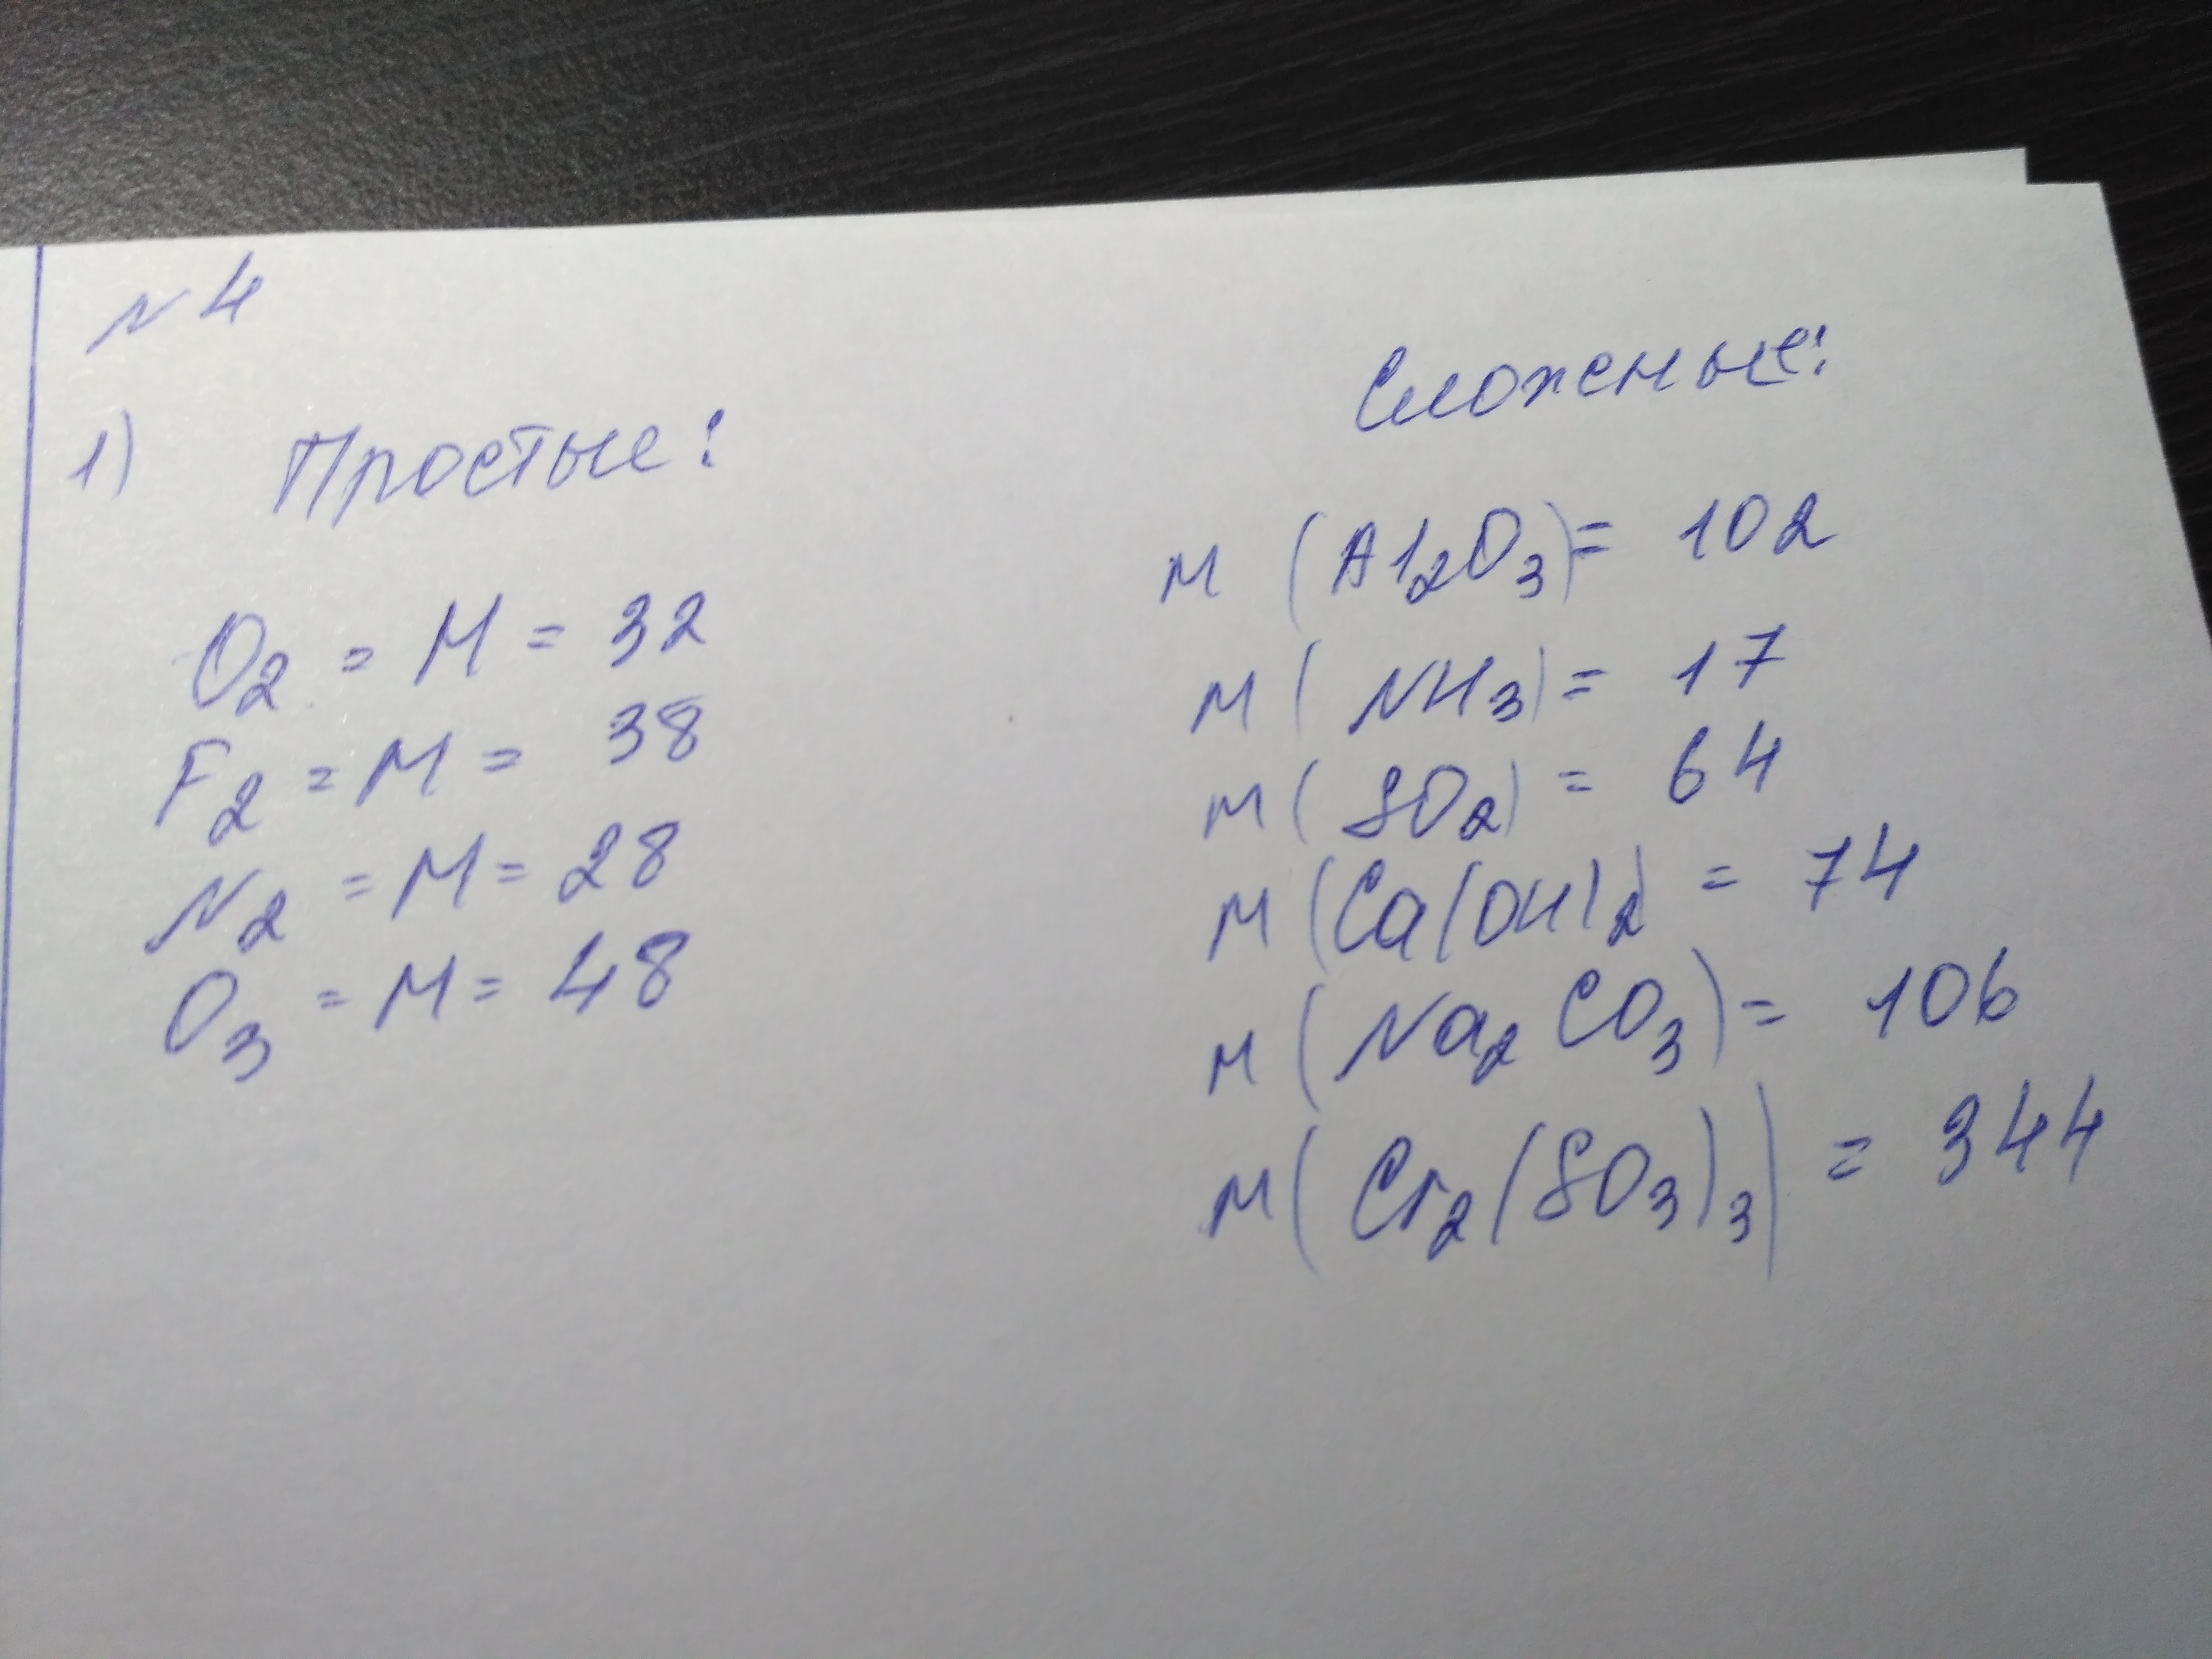 №4
1) Простые:
O₂ = M = 32
F₂ = M = 38
N₂ = M = 28
O₃ = M = 48
Сложные:
M (Al₂O₃) = 102
M (NH₃) = 17
M (SO₂) = 64
M (Ca(OH)₂) = 74
M (Na₂CO₃) = 106
M (Cr₂(SO₃)₃) = 344